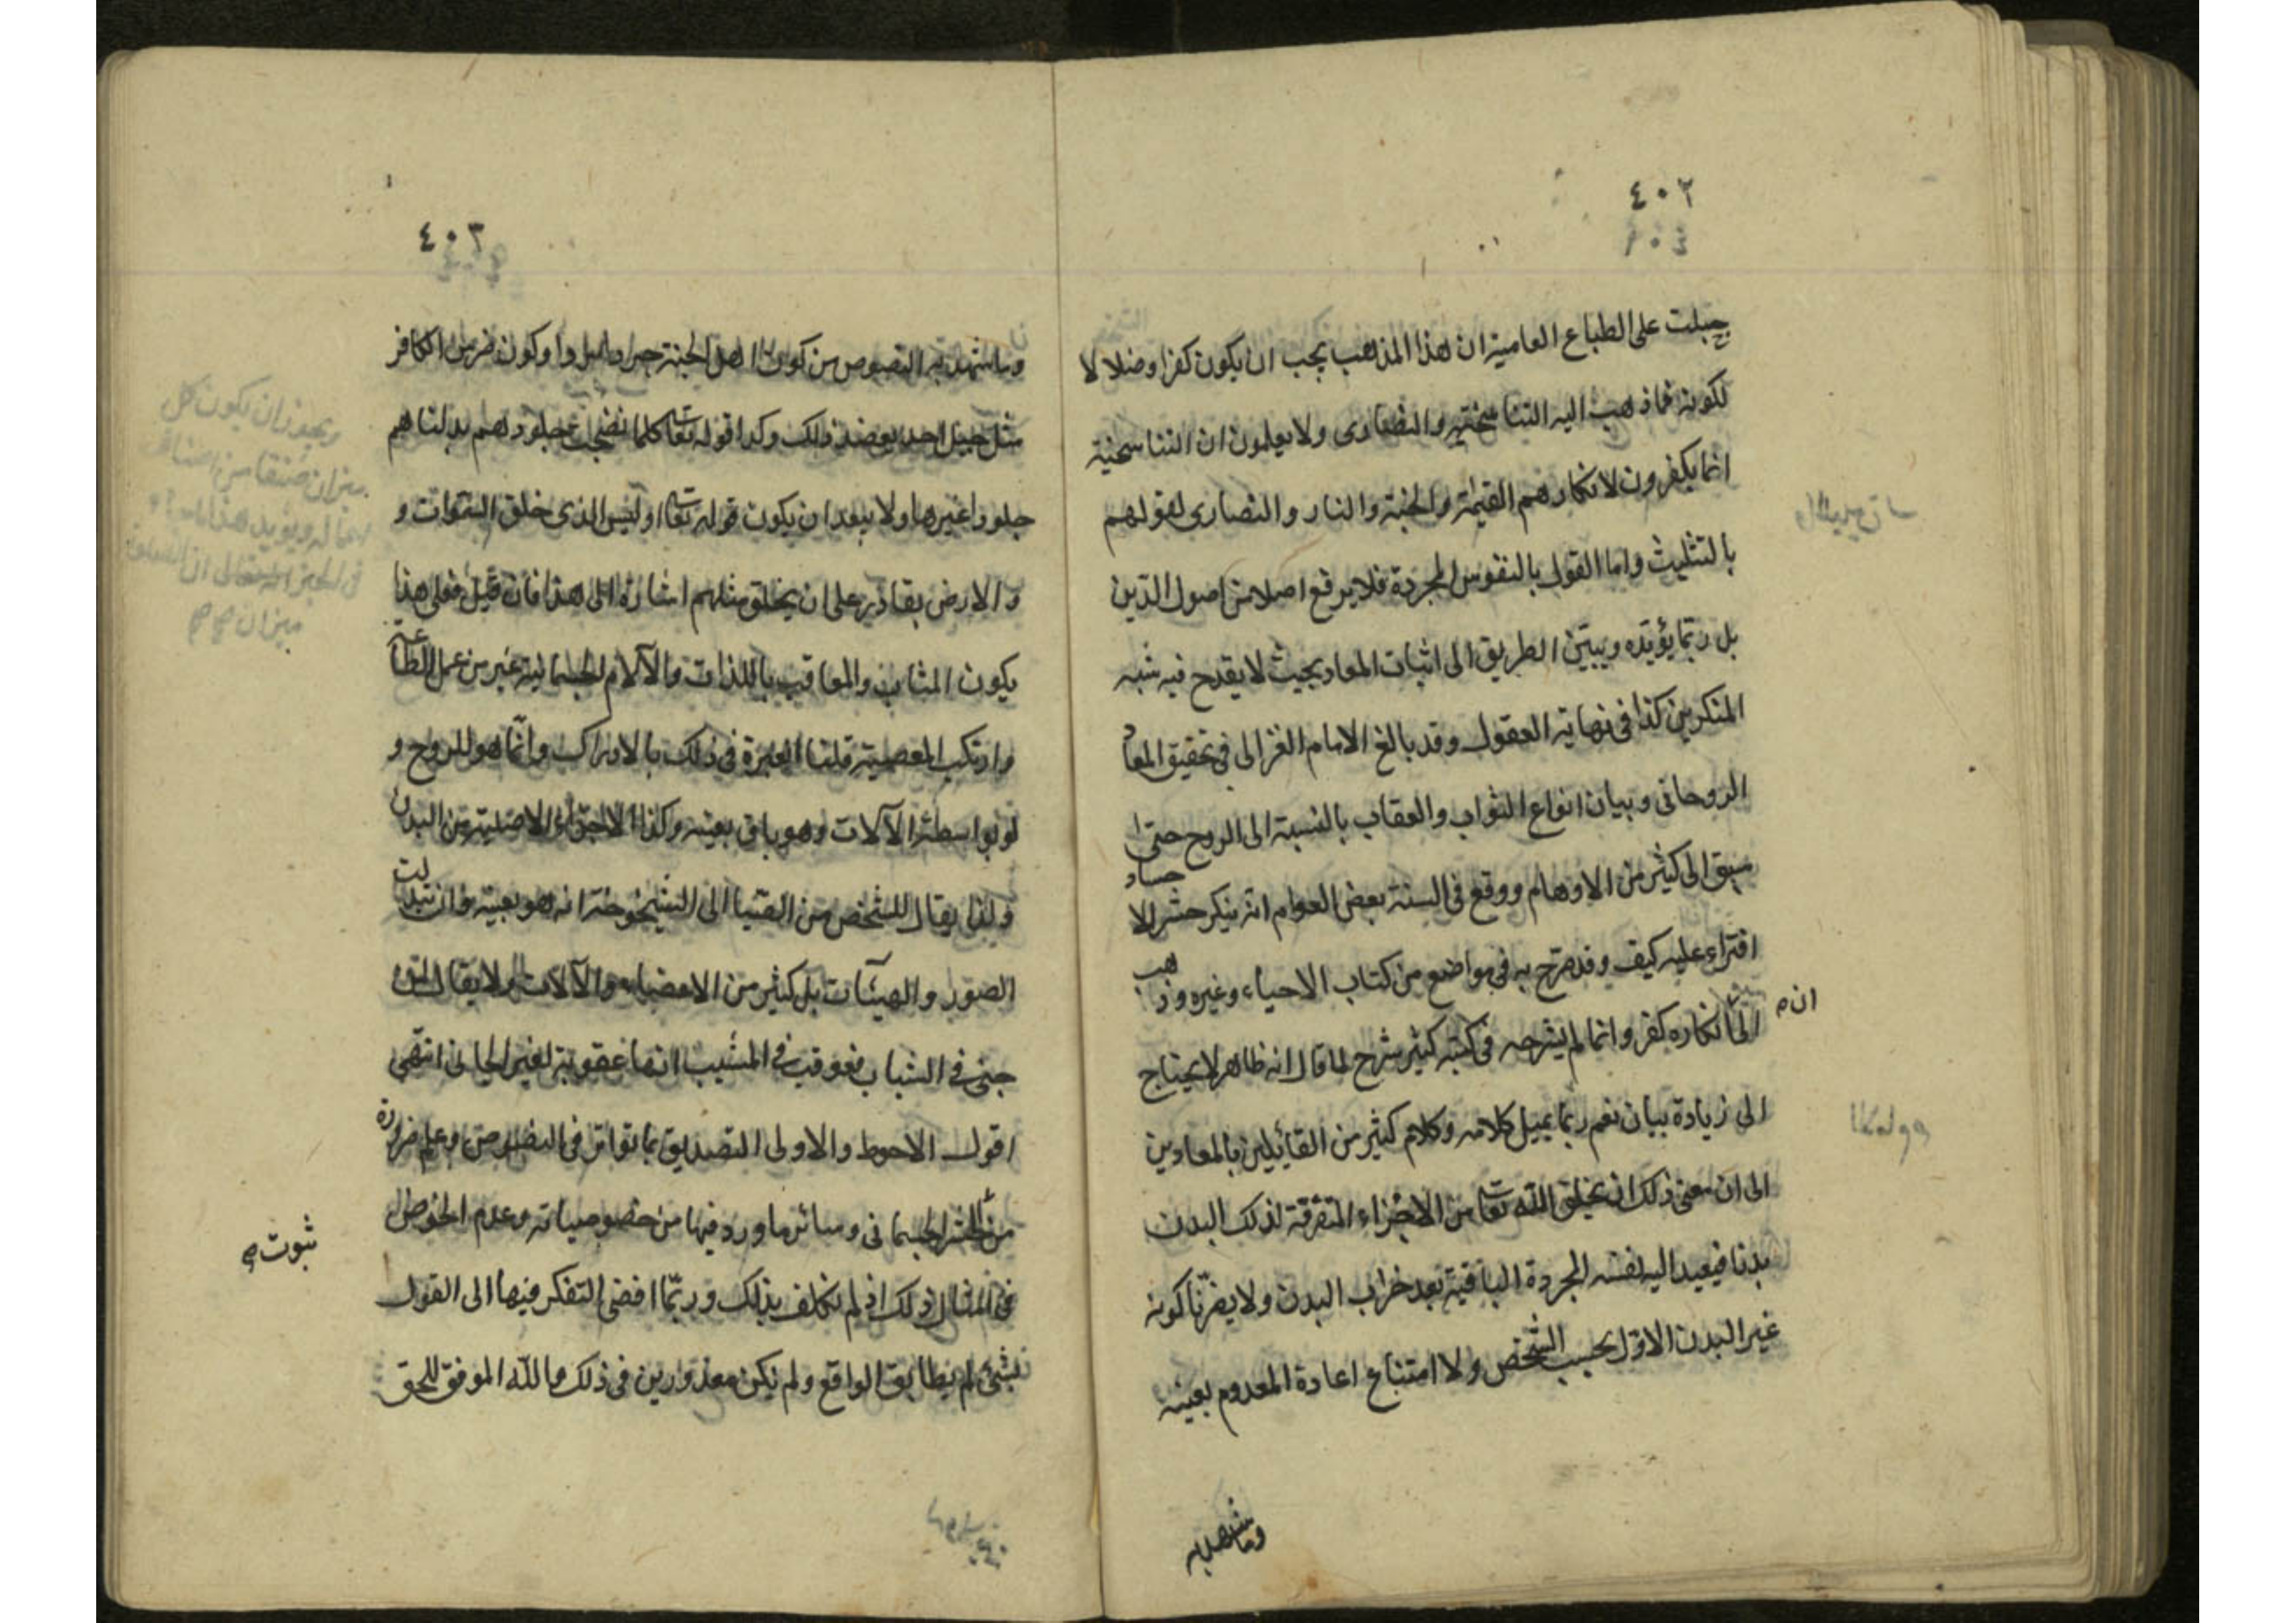 ٤٠٢
جبلت على الطباع العامية ان هذا المذهب يجب ان يكون كفرا وضلالا
لكونه مما ذهب اليه التناسخية والنصارى ولا يعلمون ان التناسخية
انما يكفرون لانكارهم القيمة والجنة والنار والنصارى لقولهم
بالتثليث واما القول بالنفوس المجردة فلا يرفع اصلا من اصول الدين
بل ربما يؤيده ويبين الطريق الى اثبات المعاد بحيث لا يقدح فيه شبه
المنكرين كذا في نهاية العقول وقد بالغ الامام الغزالى في تحقيق المعاد
الروحانى وبيان انواع الثواب والعقاب بالنسبة الى الروح حتى
سبق الى كثير من الاوهام ووقع فى السنة بعض العوام انه ينكر حشر الاجساد
افتراء عليه كيف وقد صرح به فى مواضع من كتاب الاحياء وغيره وذهب
الى ان انكاره كفر وانما لم يشرحه فى كتبه كثير شرح لما قال انه ظاهر لا يحتاج
الى زيادة بيان نعم ربما يميل كلامه وكلام كثير من القائلين بالمعادين
الى ان معنى ذلك ان يخلق الله تعا من الاجزاء المتفرقة لذلك البدن
بدنا فيعيد اليه نفسه المجردة الباقية بعد خراب البدن ولا يضرنا كونه
غير البدن الاول بحسب الشخص ولا امتناع اعادة المعدوم بعينه
وما شهد به
٤٠٣
وما شهد به النصوص من كون اهل الجنة جردا مردا وكون ضرس الكافر
مثل جبل احد يعضد ذلك وكذا قوله تعا كلما نضجت جلودهم بدلناهم
جلودا غيرها ولا يبعد ان يكون قوله تعا اوليس الذى خلق السموات و
الارض بقادر على ان يخلق مثلهم اشارة الى هذا فان قيل فعلى هذا
يكون المثاب والمعاقب باللذات والآلام الجسمانية غير من عمل الطاعة
وارتكب المعصية قلنا العبرة فى ذلك بالادراك وانما هو للروح و
لو بواسطة الآلات وهو باق بعينه وكذا الاجزاء الاصلية من البدن
ولذا يقال للشخص من الصبا الى الشيخوخة انه هو بعينه وان تبدلت
الصور والهيئات بل كثير من الاعضاء والآلات ولا يقال لمن
جنى فى الشباب فعوقب فى المشيب انها عقوبة لغير الجانى انتهى
اقول الاحوط والاولى التصديق بما تواتر فى النصوص وعلم ضرورة
من ثبوت الحشر الجسمانى وسائر ما ورد فيها من خصوصياته وعدم الخوض
فى امثال ذلك اذ لم نكلف بذلك وربما افضى التفكر فيها الى القول
بشىء لم يطابق الواقع ولم نكن معذورين فى ذلك والله الموفق للحق